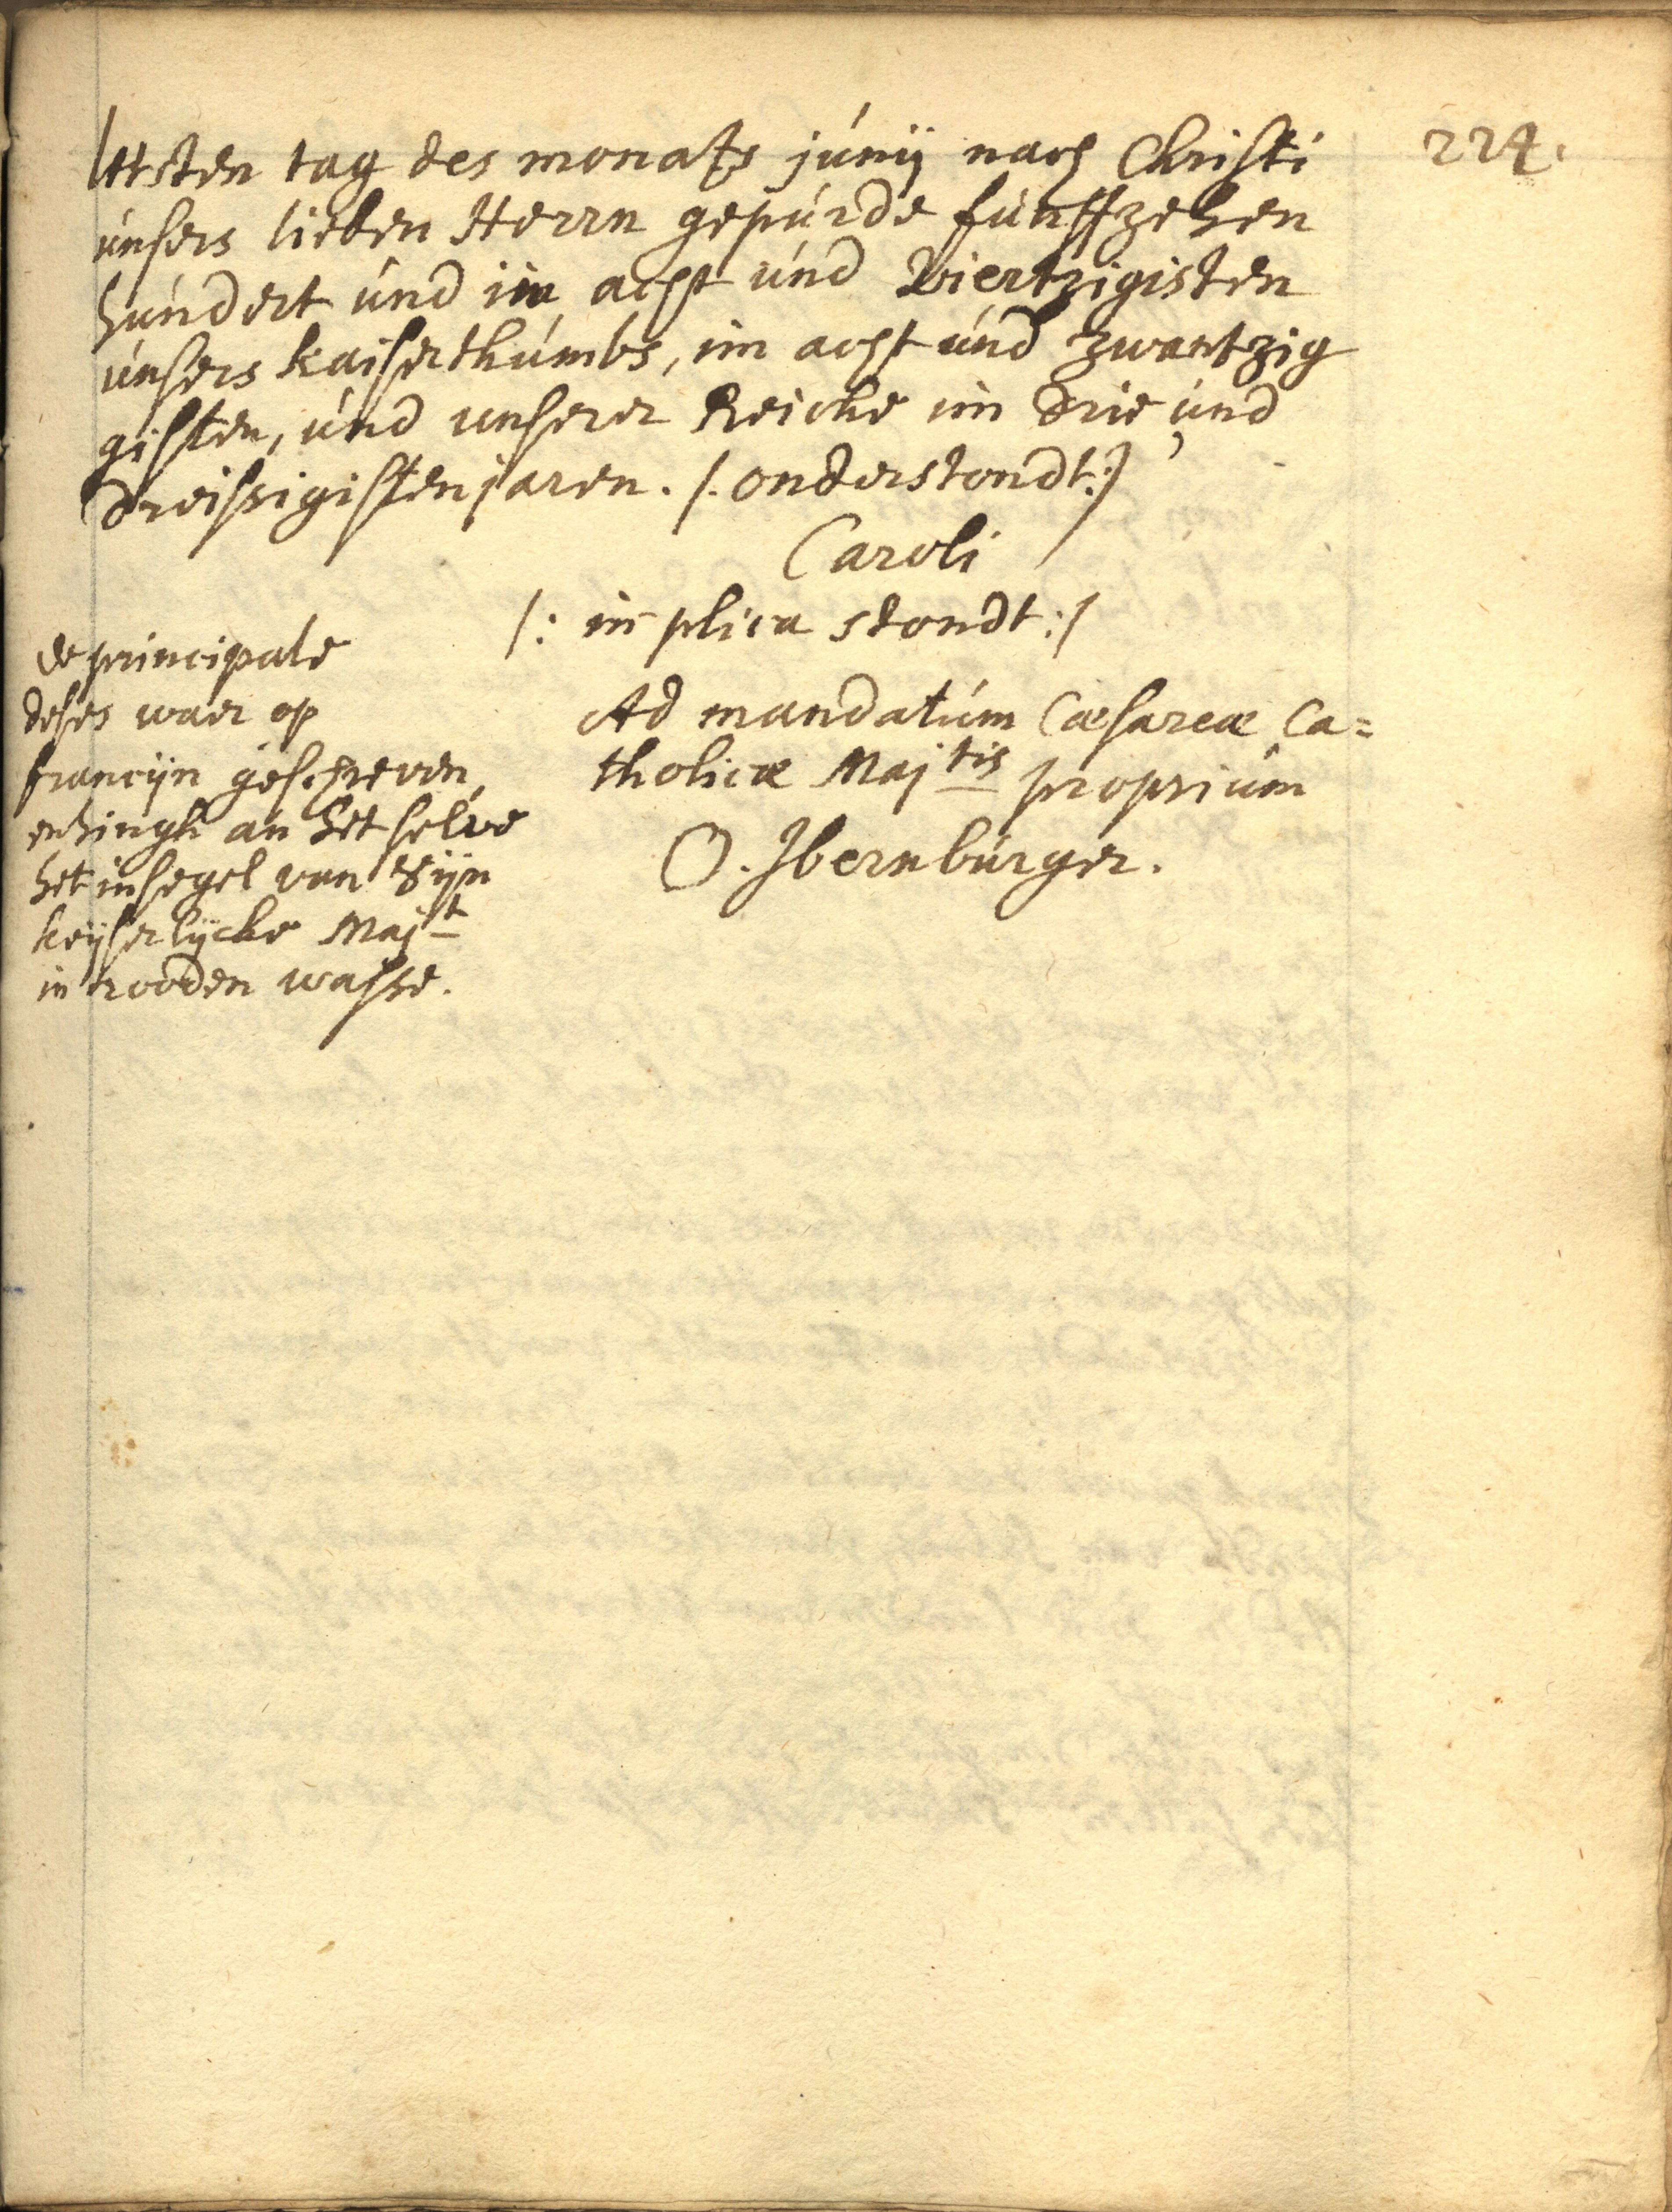 224.
letsten tag des monats júnij nach Christi
únsers lieben Herrn gepúrde fúnffzehen
húndert únd im acht únd Viertzigisten
únsers kaiserthúmbs, im acht únd zwantzig
gisten, únd unserer Reiche im drie únd
dreissigisten jaren. /. onderstondt:/
Caroli
/: in plica stondt:/
Ad mandatúm Cæsareæ Ca=
tholicæ Maj tis propriúm
O. Jbernbúrger.
de principale
deses waer op
francijn geschreven,
en hingh an het selve
het insegel van Sijn
keijserlijcke Maj t
in rooden wasse.